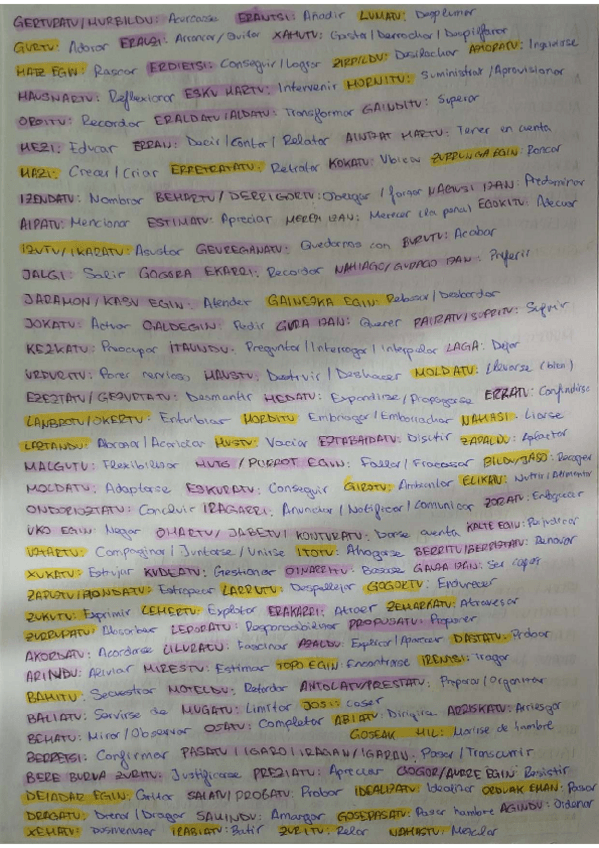 GERTURATU/HURBILDU: Acercarse ERANTSI: Añadir LUMATU: Desplumar
GURTU: Adorar ERAUZI: Arrancar/Quitar XAHUTU: Gastar/Derrochar/Despilfarrar
HATZ EGIN: Rascar ERDIETSI: Conseguir/Lograr ZIRPILDU: Deshilachar AMORATU: Ingeniarse
HAUSNARTU: Reflexionar ESKU HARTU: Intervenir HORNITU: Suministrar/Aprovisionar
OROITU: Recordar ERALDATU/ALDATU: Transformar GAINDITU: Superar
HEZI: Educar ERRAN: Decir/Contar/Relatar AINTZAT HARTU: Tener en cuenta
HAZI: Crecer/Criar ERRETRATATU: Retratar KOKATU: Ubicar ZURRUNGA EGIN: Roncar
IZENDATU: Nombrar BEHARTU/DERRIGORTU: Obligar/forzar NAGUSI IZAN: Predominar
AIPATU: Mencionar ESTIMATU: Apreciar MEREZI IZAN: Merecer (la pena) EGOKITU: Adecuar
IZUTU/IKARATU: Asustar GEUREGANATU: Quedarnos con BURUTU: Acabar
JALGI: Salir GOGORA EKARRI: Recordar NAHIAGO/GURAGO IZAN: Preferir
JARAMON/KASU EGIN: Atender GAINEZKA EGIN: Rebosar/Desbordar
JOKATU: Actuar GALDEGIN: Pedir GURA IZAN: Querer PAIRATU/SUFRITU: Sufrir
KEZKATU: Preocupar ITAUNDU: Preguntar/Interrogar/Interpelar LAGA: Dejar
URDURITU: Poner nervioso HAUSTU: Destruir/Deshacer MOLDATU: Llevarse (bien)
EZEZTATU/GEZURTATU: Desmentir HEDATU: Expandirse/Propagarse ERRATU: Confundirse
LANBROTU/OKERTU: Enturbiar HORDITU: Embriagar/Emborrachar NAHASI: Liarse
LAZTANDU: Abrazar/Acariciar HUSTU: Vaciar EZTABAIDATU: Discutir ZAPALDU: Aplastar
MALGUTU: Flexibilizar HUTS/PORROT EGIN: Fallar/Fracasar BILDU/JASO: Recoger
MOLDATU: Adaptarse ESKURATU: Conseguir GIROTU: Ambientar ELIKATU: Nutrir/Alimentar
ONDORIOZTATU: Concluir IRAGARRI: Anunciar/Notificar/Comunicar ZORATU: Enloquecer
UKO EGIN: Negar OHARTU/JABETU/KONTURATU: Darse cuenta KALTE EGIN: Perjudicar
UZTARTU: Compaginar/Juntarse/Unirse ITOTU: Ahogarse BERRITU/BERRIZTATU: Renovar
XUKATU: Estrujar KUDEATU: Gestionar OINARRITU: Basarse GAUZA IZAN: Ser capaz
ZAPUZTU/HONDATU: Estropear LARRUTU: Despellejar GOGORTU: Endurecer
ZUKUTU: Exprimir LEHERTU: Explotar ERAKARRI: Atraer ZEHARKATU: Atravesar
ZURRUPATU: Absorber LEPORATU: Responsabilizar PROPOSATU: Proponer
AKORDATU: Acordarse LILURATU: Fascinar AZALDU: Explicar/Aparecer DASTATU: Probar
ARINDU: Aliviar MIRESTU: Estimar TOPO EGIN: Encontrarse IRENTSI: Tragar
BAHITU: Secuestrar MOTELDU: Retardar ANTOLATU/PRESTATU: Preparar/Organizar
BALIATU: Servirse de MUGATU: Limitar JOSI: coser
BEHATU: Mirar/Observar OSATU: Completar ABIATU: Dirigirse ARRISKATU: Arriesgar
GOSEAK HIL: Morirse de hambre
BERRETSI: Confirmar PASATU/IGARO/IRAGAN/IGARAN: Pasar/Transcurrir
BERE BURUA ZURITU: Justificarse PREZIATU: Apreciar GOGOR/AURRE EGIN: Resistir
DEIADAR EGIN: Gritar SAIATU/PROBATU: Probar IDEALIZATU: Idealizar ORDUAK EMAN: Pasar
DRAGATU: Drenar/Dragar SAMINDU: Amargar GOSEPASATU: Pasar hambre AGINDU: Ordenar
XEHATU: Desmenuzar IRABIATU: Batir ZURITU: Pelar NAHASTU: Mezclar